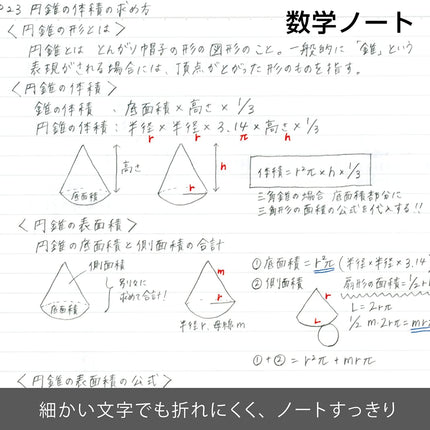 P23 円錐の体積の求め方
数学ノート
〈円錐の形とは〉
円錐とは とんがり帽子の形の図形のこと。一般的に「錐」という
表現がされる場合には、頂点がとがった形のものを指す。
〈円錐の体積〉
錐の体積 : 底面積×高さ×1/3
円錐の体積 : 半径×半径×3.14×高さ×1/3
r r π h
高さ
底面積
h
r
体積=r²π×h×1/3
三角錐の場合 底面積部分に
三角形の面積の公式を代入する!!
〈円錐の表面積〉
円錐の底面積と側面積の合計
側面積
別々に
求めて合計!
底面積
m
r
半径r、母線m
①底面積=r²π(半径×半径×3.14
②側面積
扇形の面積=1/2 r
L=2rπ
1/2 m・2rπ=mr
r
L
r
①+②=r²π+mrπ
〈円錐の表面積の公式〉
細かい文字でも折れにくく、ノートすっきり